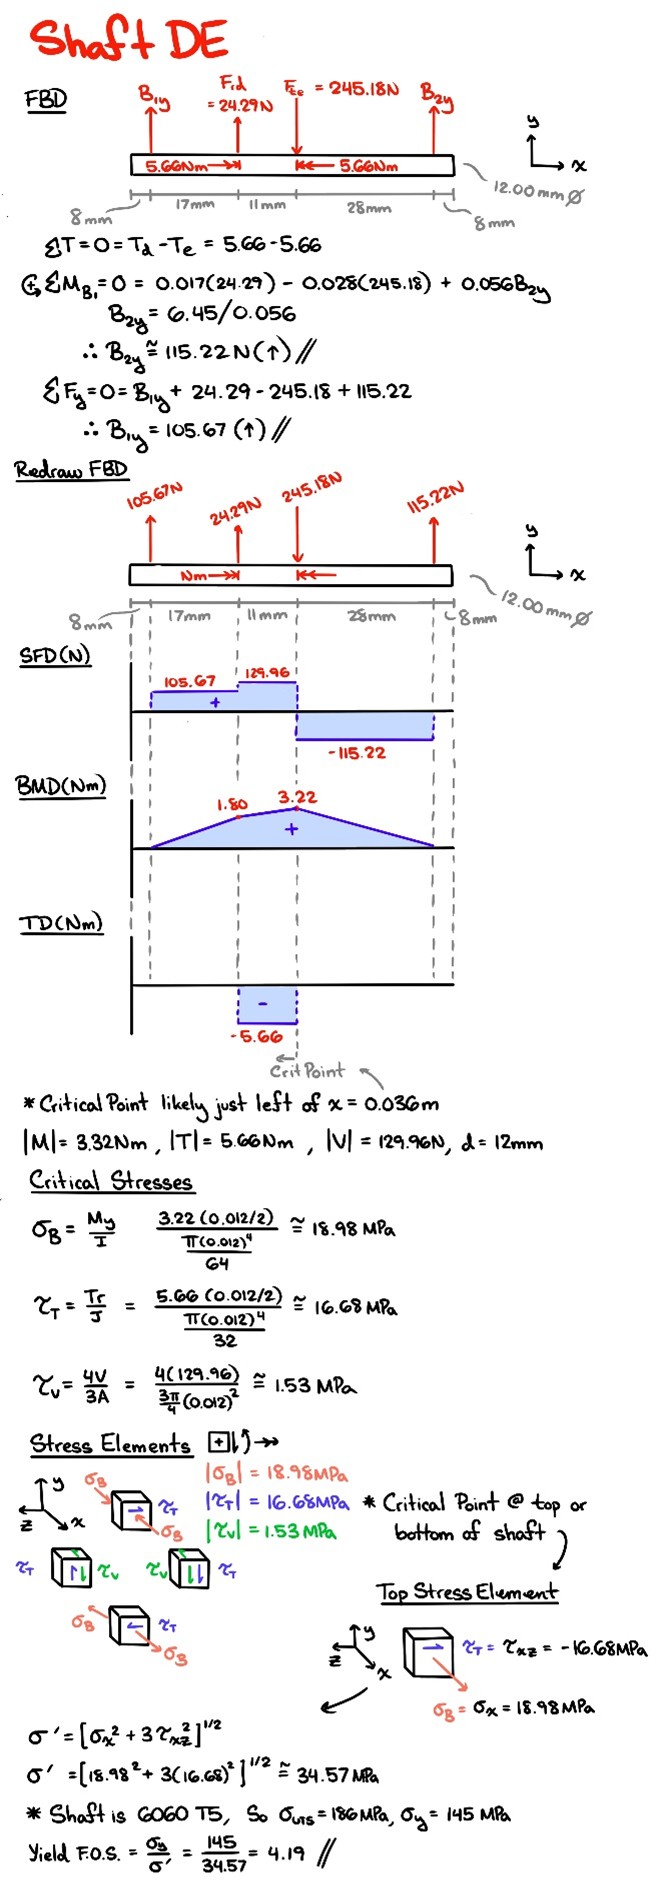 Shaft DE
FBD
B1y
Fid = 24.29N
FEe = 245.18N
B2y
y
x
5.66Nm
5.66Nm
12.00mm Ø
8mm
17mm
11mm
28mm
8mm
ΣT = 0 = Td - Te = 5.66 - 5.66
ΣMB1 = 0 = 0.017(24.29) - 0.028(245.18) + 0.056B2y
B2y = 6.45/0.056
∴ B2y ≅ 115.22 N (↑) //
ΣFy = 0 = B1y + 24.29 - 245.18 + 115.22
∴ B1y = 105.67 (↑) //
Redraw FBD
105.67N
24.29N
245.18N
115.22N
y
x
Nm
12.00mm Ø
8mm
17mm
11mm
28mm
8mm
SFD(N)
105.67
129.96
+
-115.22
BMD(Nm)
1.80
3.22
+
TD(Nm)
-
-5.66
Crit Point
* Critical Point likely just left of x = 0.036m
|M| = 3.32Nm, |T| = 5.66Nm, |V| = 129.96N, d = 12mm
Critical Stresses
σB = My/I 3.22(0.012/2) / (π(0.012)^4/64) ≅ 18.98 MPa
τT = Tr/J = 5.66(0.012/2) / (π(0.012)^4/32) ≅ 16.68 MPa
τV = 4V/3A = 4(129.96) / (3π/4 (0.012)^2) ≅ 1.53 MPa
Stress Elements
|σB| = 18.98MPa
|τT| = 16.68MPa
|τV| = 1.53MPa
* Critical Point @ top or
bottom of shaft
y
z
x
σB
τT
σB
τT
τV
τV
τT
σB
τT
σB
Top Stress Element
y
z
x
τT = τxz = -16.68MPa
σB = σx = 18.98MPa
σ' = [σx² + 3τxz²]^1/2
σ' = [18.98² + 3(16.68)²]^1/2 ≅ 34.57MPa
* Shaft is 6060 T5, So σUTS = 186MPa, σy = 145 MPa
Yield F.O.S. = σy/σ' = 145/34.57 = 4.19 //